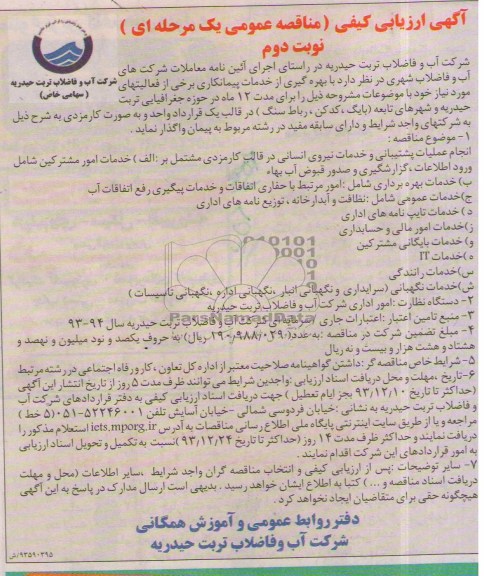 آگهی ارزیابی کیفی ( مناقصه عمومی یک مرحله ای )
نوبت دوم
شرکت آب و فاضلاب تربت حیدریه
( سهامی خاص )
شرکت آب و فاضلاب تربت حیدریه در راستای اجرای آئین نامه معاملات شرکت های
آب و فاضلاب شهری در نظر دارد با بهره گیری از خدمات پیمانکاری برخی از فعالیتهای
مورد نیاز خود با موضوعات مشروحه ذیل را برای مدت ۱۲ ماه در حوزه جغرافیایی تربت
حیدریه و شهرهای تابعه (بایگ ،کدکن ، رباط سنگ ) در قالب یک قرارداد واحد و به صورت کارمزدی به شرح ذیل
به شرکتهای واجد شرایط و دارای سابقه مفید در رشته مربوط به پیمان واگذار نماید .
۱- موضوع مناقصه :
انجام عملیات پشتیبانی و خدمات نیروی انسانی در قالب کارمزدی مشتمل بر : الف ) خدمات امور مشترکین شامل
ورود اطلاعات ، گزارشگیری و صدور قبوض آب بهاء
ب) خدمات بهره برداری شامل : امور مرتبط با حفاری اتفاقات و خدمات پیگیری رفع اتفاقات آب
ج)خدمات عمومی شامل : نظافت و آبدارخانه ، توزیع نامه های اداری
د ) خدمات تایپ نامه های اداری
ز) خدمات امور مالی و حسابداری
و) خدمات بایگانی مشترکین
ه) خدمات IT
س)خدمات رانندگی
ش)خدمات نگهبانی (سرایداری و نگهبانی انبار ،نگهبانی اداره ،نگهبانی تاسیسات )
۲- دستگاه نظارت : امور اداری شرکت آب و فاضلاب تربت حیدریه
۳- منبع تامین اعتبار : اعتبارات جاری / سرمایه ای شرکت آب و فاضلاب تربت حیدریه سال ۹۴-۹۳
۴- مبلغ تضمین شرکت در مناقصه :به عدد( ریال) به حروف یکصد و نود میلیون و نهصد و
هشتاد و هشت هزار و بیست و نه ریال
۵- شرایط خاص مناقصه گر :داشتن گواهینامه صلاحیت معتبر از اداره کل تعاون ،کار و رفاه اجتماعی در رشته مرتبط
۶-تاریخ ،مهلت و محل دریافت اسناد ارزیابی :واجدین شرایط می توانند ظرف مدت ۵ روز از تاریخ انتشار این آگهی
(حداکثر تا تاریخ ۹۳/۱۲/۱۰ بجز ایام تعطیل ) جهت دریافت اسناد ارزیابی کیفی به دفتر قراردادهای شرکت آب
و فاضلاب تربت حیدریه به نشانی :خیابان فردوسی شمالی -خیابان آسایش تلفن ۵۲۲۴۶۰۰۱-۰۵۱(۵ خط )
مراجعه و یا از طریق سایت اینترنتی پایگاه ملی اطلاع رسانی مناقصات به آدرس iets.mporg.ir استعلام مذکور را
دریافت نمایند و حداکثر ظرف مدت ۱۴ روز (حداکثر تا تاریخ ۹۳/۱۲/۲۴) نسبت به تکمیل و تحویل اسناد ارزیابی
به امور قراردادهای این شرکت اقدام نمایند .
۷- سایر توضیحات :پس از ارزیابی کیفی و انتخاب مناقصه گران واجد شرایط ،سایر اطلاعات (محل و مهلت
دریافت اسناد مناقصه و ... ) کتبا به اطلاع ایشان خواهد رسید . بدیهی است ارسال مدارک در پاسخ به این آگهی
هیچگونه حقی برای متقاضیان ایجاد نخواهد کرد .
دفتر روابط عمومی و آموزش همگانی
شرکت آب و فاضلاب تربت حیدریه
۹۳۵۹۰۳۹۵/ش
ParsNamadData